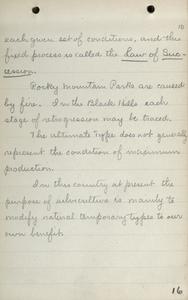 10
each given set of conditions, and this
fixed process is called the Law of Suc-
cession.
Rocky Mountain Parks are caused
by fire. In the Black Hills each
stage of retrogression may be traced.
The ultimate type does not generally
represent the condition of maximum
production.
In this country at present the
purpose of silviculture is mainly to
modify natural temporary types to our
own benefit.
16